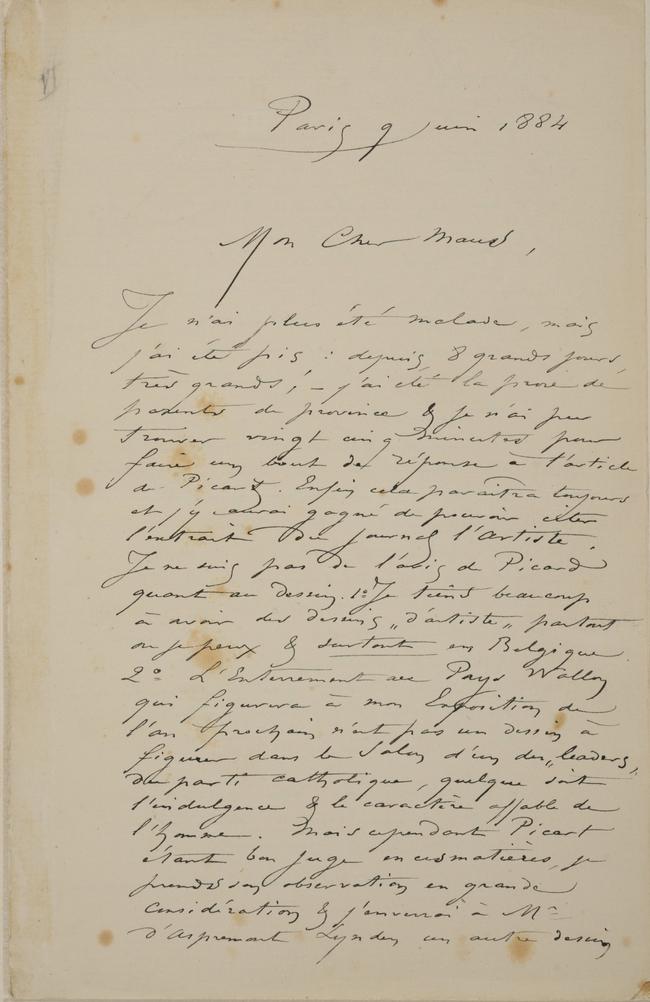 VI
Paris 9 Juin 1884
Mon Cher Maus,
Je n'ai plus été malade, mais
j'ai été pis : depuis 8 grands jours,
très grands ! – j'ai été la proie de
parents de province & je n'ai pu
trouver vingt cinq minutes pour
faire un bout de réponse à l'article
de Picard. Enfin cela paraîtra toujours
et j'y aurai gagné de pouvoir citer
l'extrait du journal l'Artiste.
Je ne suis pas de l'avis de Picard
quant au dessin. 1º Je tiens beaucoup
à avoir des dessins „d'artiste„ partout
où je peux & surtout en Belgique
2º L'Enterrement au Pays Wallon
qui figurera à mon Exposition de
l'an prochain n'est pas un dessin à
figurer dans le Salon d'un des „leaders„
du parti catholique, quelque soit
l'indulgence & le caractère affable de
l'homme. Mais cependant Picart
étant bon juge en ces matières, je
prends son observation en grande
considération & j'enverrai à Mr
d'Aspremont Lynden un autre dessin